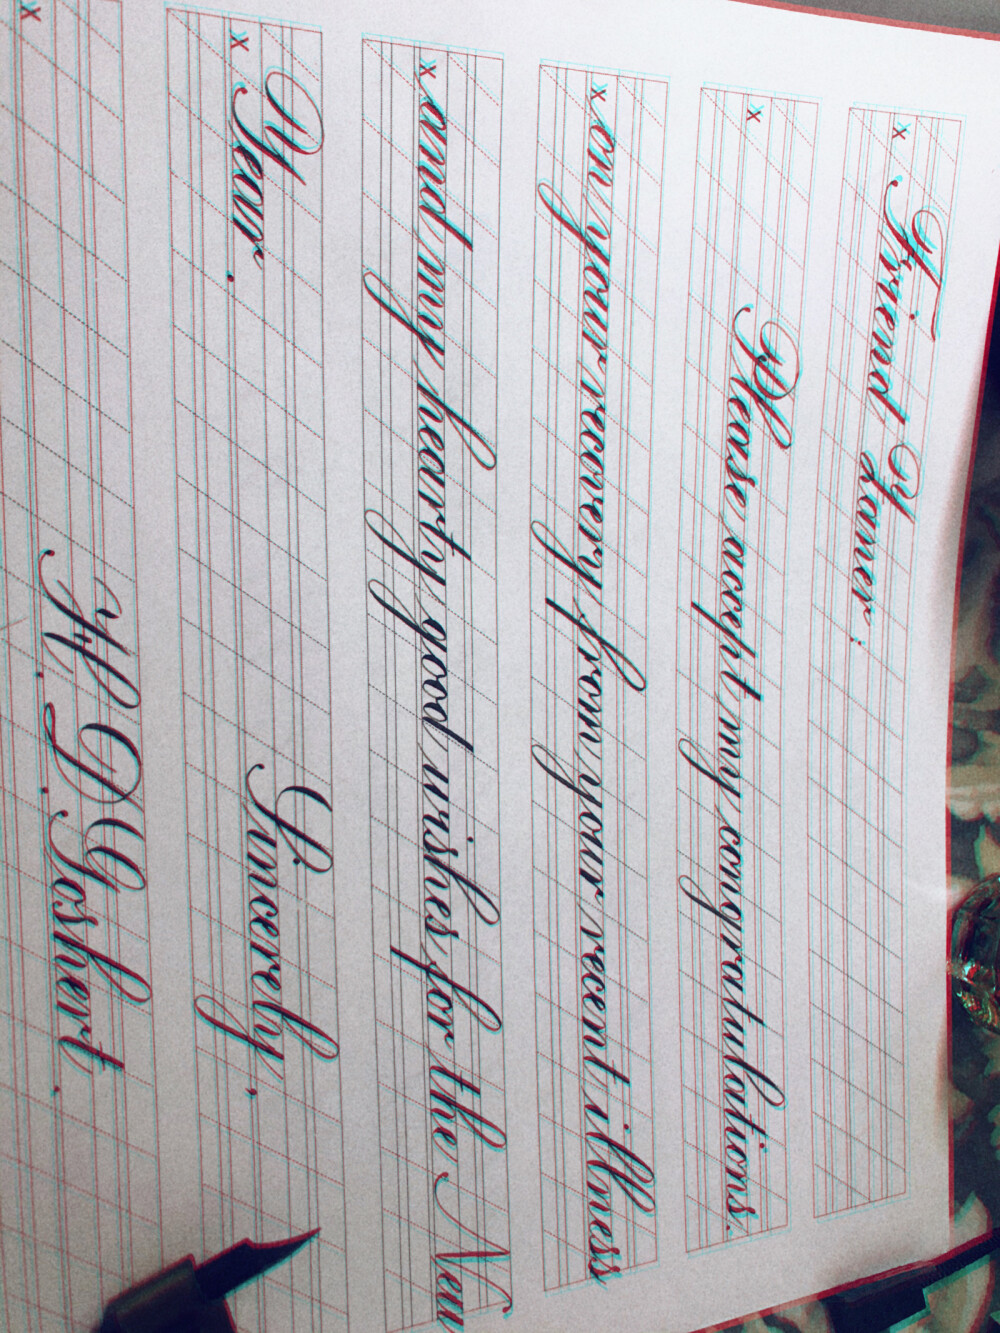 Friend Zaner:
Please accept my congratulations
on your recovery from your recent illness
and my hearty good wishes for the New
Year.
Sincerely,
H. D. Goshert.